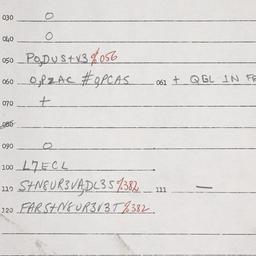 030 O
040 O
050 PO,DUS+V3%056
060 O,PZAC #9PCAS 061 + QGL IN
070 +
080
090 O
100 L7ECL
110 S+N&UR3VA,DL35%382 111 —
120 FARS+N&UR3V3T%382